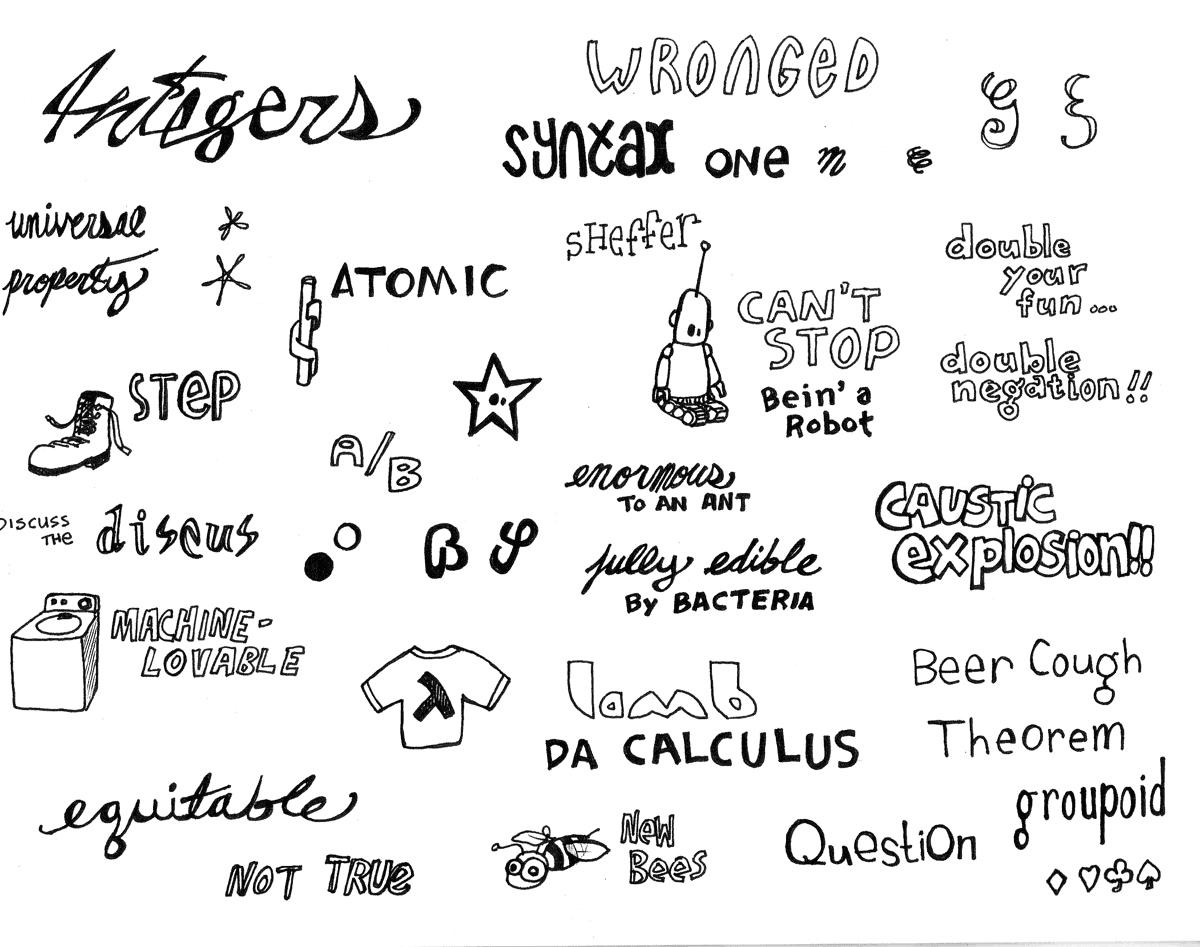 Antigers
WRONGED
SYNTAX ONE m
universal
property
SHeffer
ATOMIC
double
your
fun...
CAN'T
STOP
Bein' a
Robot
double
negation!!
STEP
A/B
enormous
TO AN ANT
CAUSTIC
explosion!!
DISCUSS
THE discus
B φ
fully edible
By BACTERIA
MACHINE-
LOVABLE
λ
lamb
DA CALCULUS
Beer Cough
Theorem
equitable
groupoid
NOT TRUe
New
Bees
QuestiOn